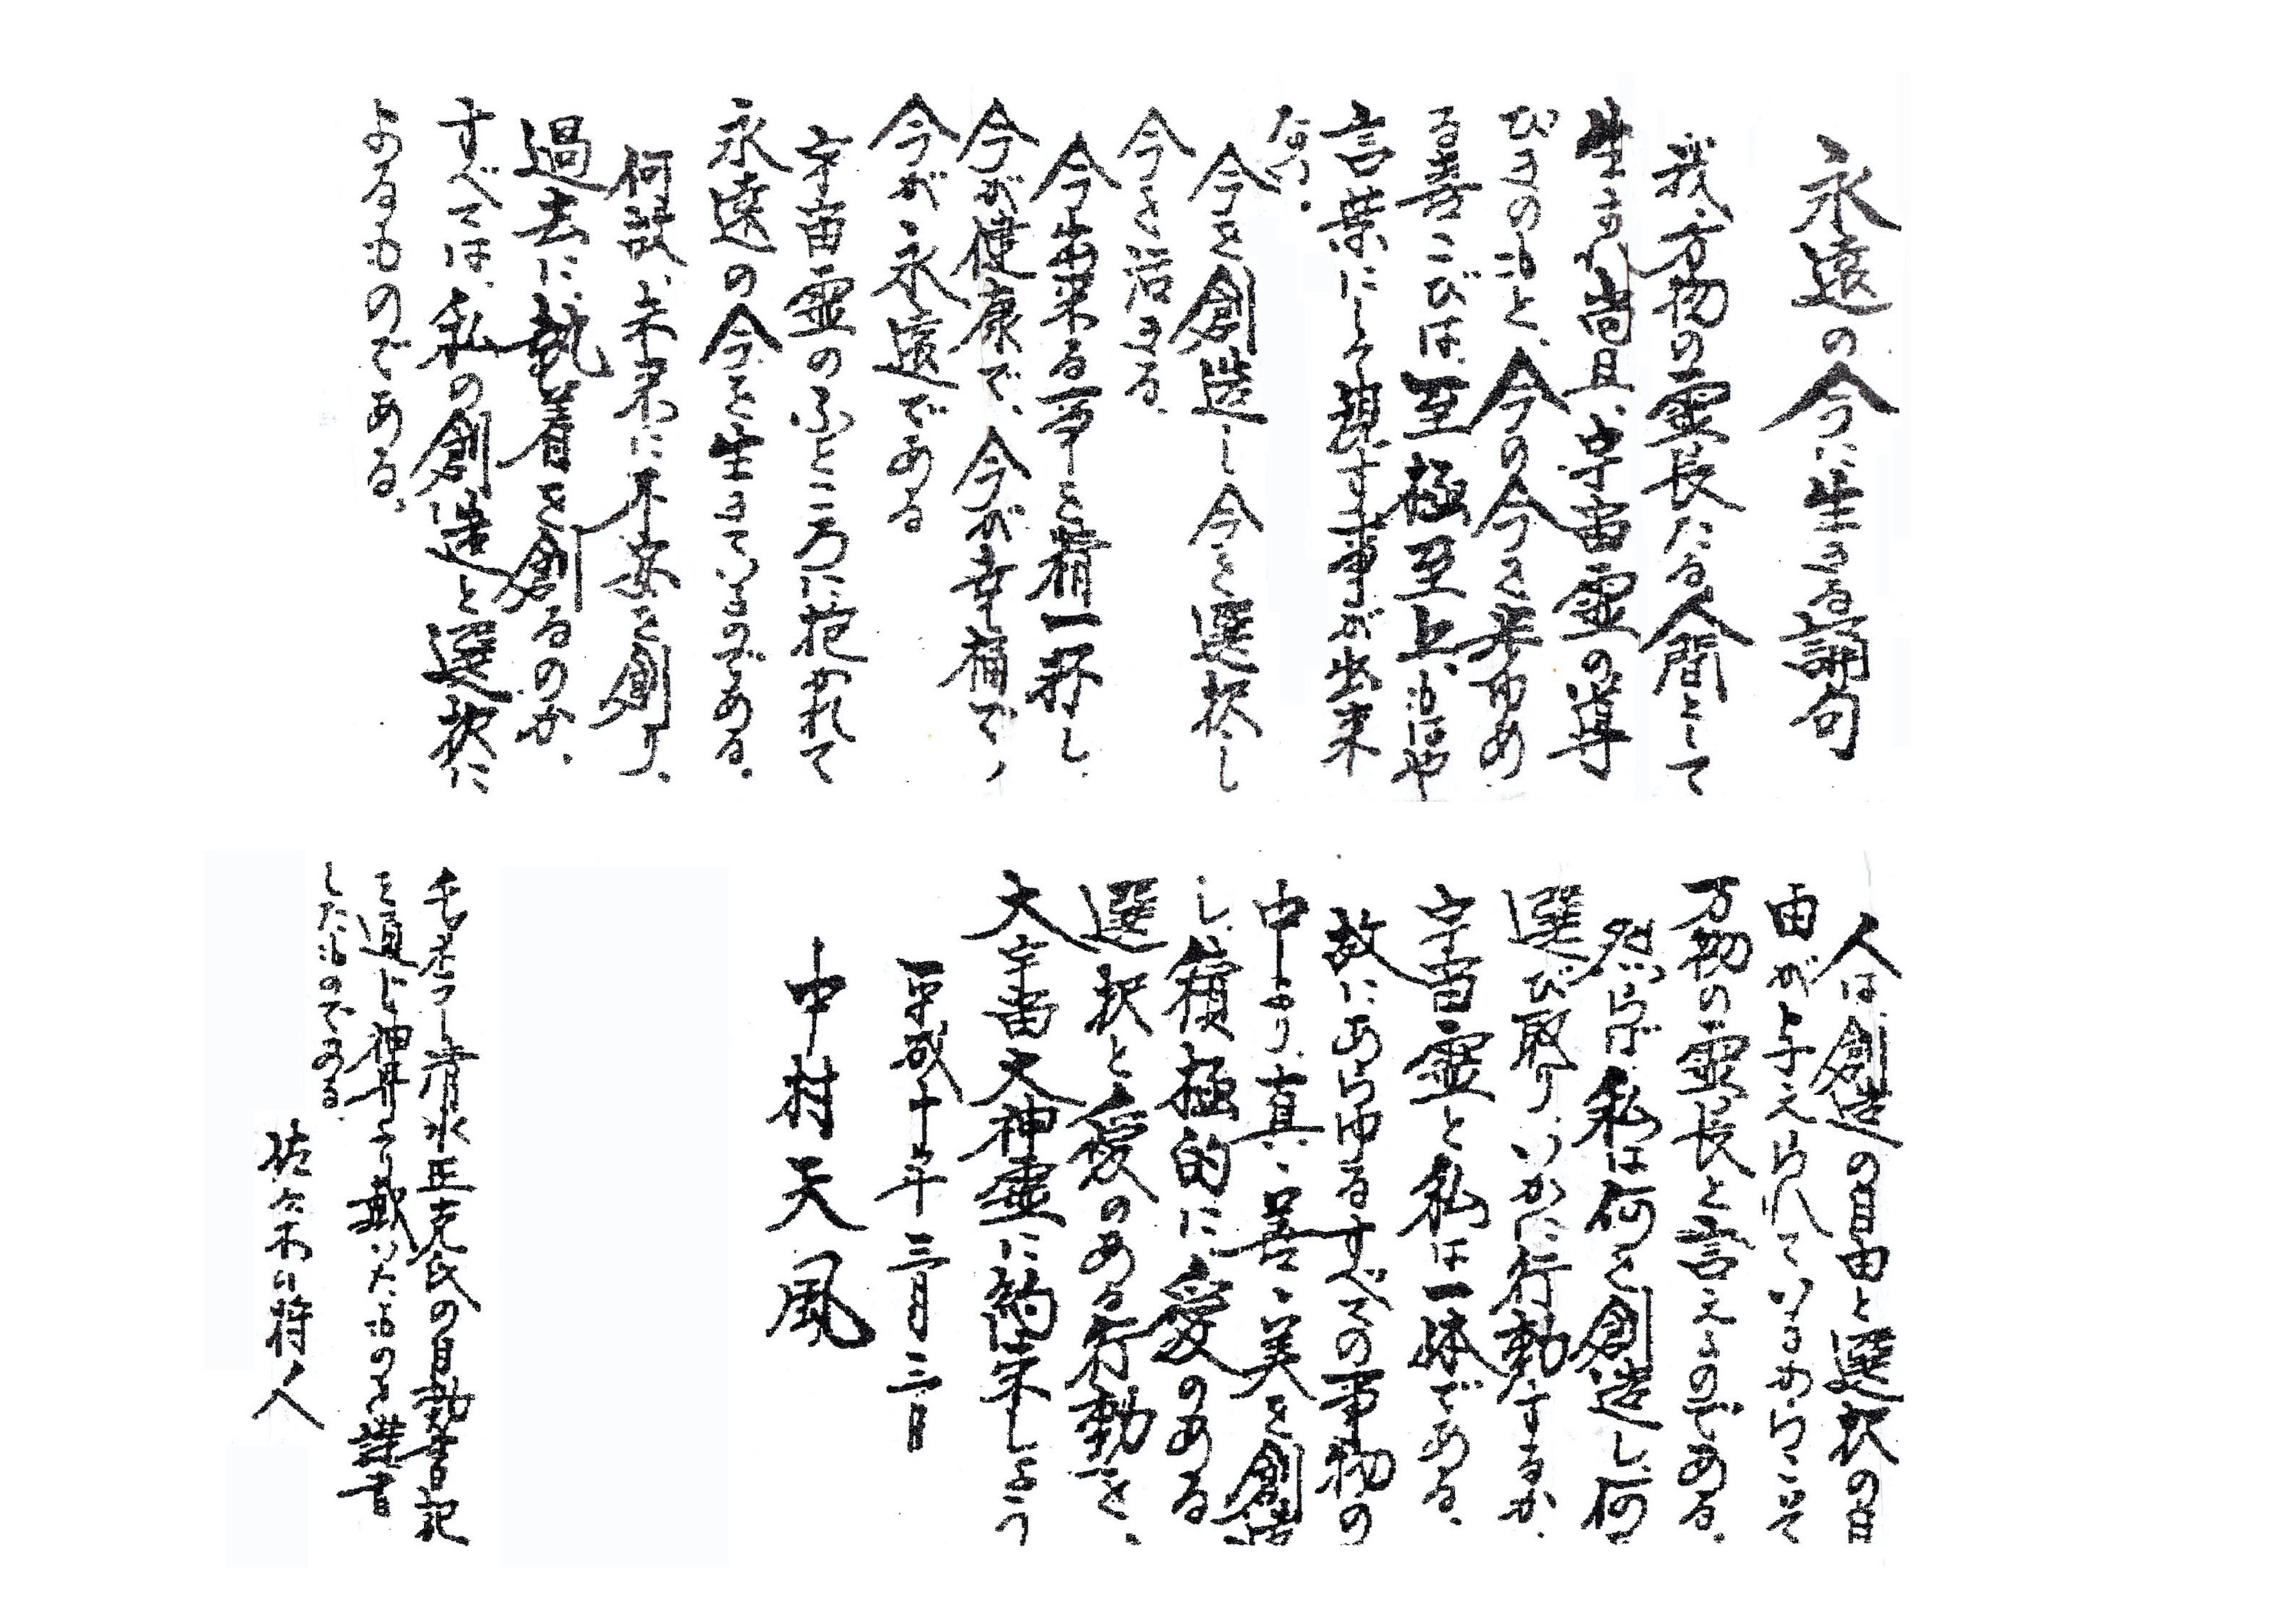 永遠の今に生きる誦句
我、万物の霊長たる人間として
生まれ尚且、宇宙霊の導
びきのもと、今の今を歩ゆめ
る喜こびは、至極至上、もはや
言葉にして表す事が出来
ない。
今を創造し今を選択し
今を活きる。
今出来る事を精一杯し、
今が健康で、今が幸福で、
今が永遠である
宇宙霊のふところに抱かれて
永遠の今を生きているのである。
何故、未来に不安を創り、
過去に執着を創るのか、
すべては、私の創造と選択に
よるものである。
人は、創造の自由と選択の自
由が与えられているからこそ
万物の霊長と言えるのである。
然らば、私は何を創造し、何
選び取り、いかに行動するか、
宇宙霊と私は一体である。
故にあらゆるすべての事物の
中より、真、善、美を創造
し、積極的に、愛のある
選択と愛のある行動を、
大宇宙大神霊に約束しよう
平成十年三月三日
中村天風
清水正克氏の自動書記
を通じ神界より戴いたものを謹書
したものである。
佐々木の将人